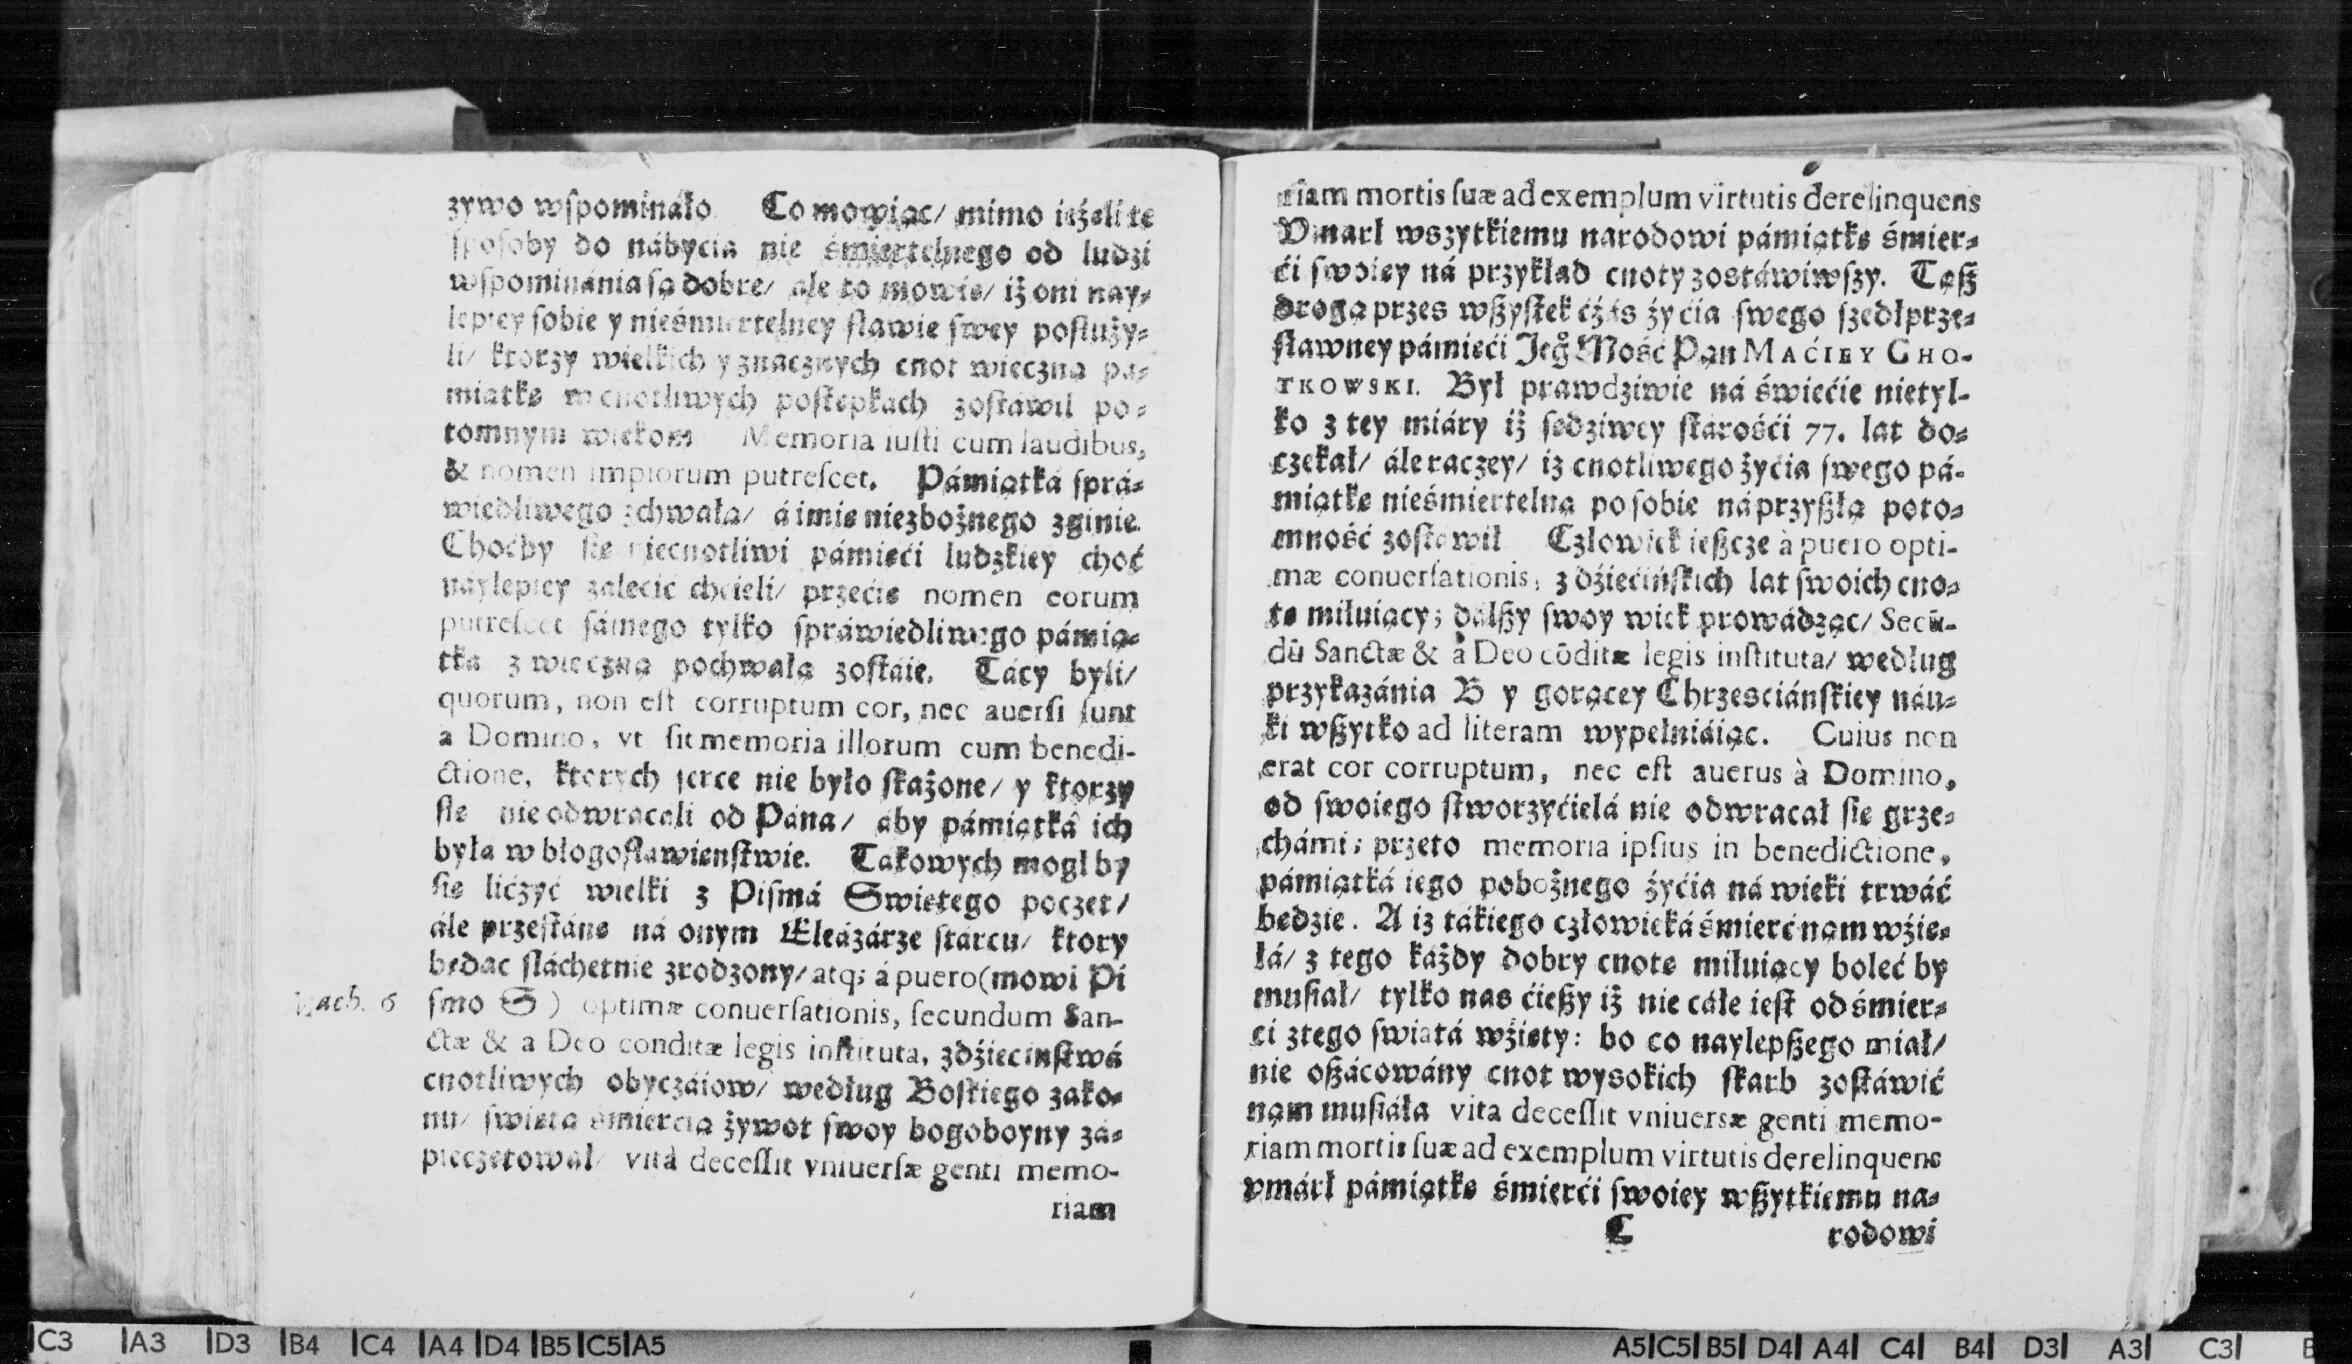 zywo wſpomináło. Co mowiąc/ mimo ieżeli te
ſpoſoby do nábycia nie śmiertelnego od ludzi
wſpominánia ſą dobre/ ale to mowię/ iż oni nay⸗
lepiey ſobie y nieśmiertelney ſławie ſwey poſłuży⸗
li/ ktorzy wielkich y znacznych cnot wieczną pa⸗
miątkę w cnotliwych poſtępkach zoſtáwil po⸗
tomnym wiekom Memoria iuſti cum laudibus,
& nomen impiorum putreſcet. Pámiątká ſprá⸗
wiedliwego z chwałą/ á imię niezbożnego zginie.
Choćby ſię niecnotliwi pámięći ludzkiey choć
naylepiey zalecic chcieli/ przećię nomen eorum
putreſcet ſámego tylko ſpráwiedliwego pámią⸗
tka z wieczną pochwałą zoſtaie. Tácy byli/
quorum, non eſt corruptum cor, nec auerſi ſunt
a Domino, vt ſit memoria illorum cum benedi-
ctione, ktorych ſerce nie było ſkażone/ y ktorzy
ſię nie odwracali od Pána/ aby pámiątká ich
była w błogoſławienſtwie. Takowych mogł by
ſię liczyć wielki z Piſmá Swiętego poczet/
ále przeſtánę ná onym Eleázárze ſtárcu/ ktory
będąc ſláchetnie zrodzony/ atq; á puero (mowi Pi
Mach. 6 ſmo S) optimæ conuerſationis, ſecundum San-
ctæ & a Deo conditæ legis inſtituta, zdźiecinſtwá
cnotliwych obyczáiow/ według Boſkiego zako⸗
nu/ ſwiętą śmiercią żywot ſwoy bogoboyny zá⸗
pieczętował/ vitâ deceſſit vniuerſæ genti memo-
riam
riam mortis ſuæ ad exemplum virtutis derelinquens
Vmarł wszytkiemu narodowi pámiątkę śmier⸗
ći ſwoiey ná przykład cnoty zostáwiwſzy. Tąß
drogą przes wßyſtek ćżás żyćia ſwego ſzedł prze⸗
ſławney pámięći Jeg° Mość Pan MAĆIEY CHO-
TKOWSKI. Był prawdziwie ná świećie nietyl-
ko z tey miáry iż ſędziwey ſtárośći 77. lat do⸗
czekał/ ále raczey/ iż cnotliwego żyćia ſwego pá-
miątkę nieśmiertelną po ſobie ná przyßłą poto⸗
mność zoſtawił Człowiek ießcze à puero opti-
mæ conuerſationis, z dźiećińſkich lat ſwoich cno⸗
tę miluiący; dálßy ſwoy wiek prowádząc/ Secũ-
dũ Sanctæ & à Deo cõditæ legis inſtituta/ według
przykazánia B y gorącey Chrzesciánſkiey náu⸗
ki wßytko ad literam wypełniáiąc. Cuius non
erat cor corruptum, nec eſt auerus à Domino,
od ſwoiego ſtworzyćielá nie odwracał ſię grze⸗
chámi; przeto memoria ipſius in benedictione,
pámiątká iego pobożnego żyćia ná wieki trwáć
będzie. A iż tákiego człowieká śmierć nam wźię⸗
łá/ z tego káżdy dobry cnotę miluiący boleć by
muſiał/ tylko nas ćießy iż nie cále ieſt od śmier⸗
ci z tego ſwiatá wźięty: bo co naylepßego miał/
nie oßácowány cnot wysokich ſkarb zoſtáwić
nąm muſiáła vita deceſſit vniuersæ genti memo-
riam mortis ſuæ ad exemplum virtutis derelinquens
vmárł pámiątkę śmierći ſwoiey wßytkiemu na⸗
C rodowi
C3 A3 D3 B4 C4 A4 D4 B5 C5 A5
A5 C5 B5 D4 A4 C4 B4 D3 A3 C3